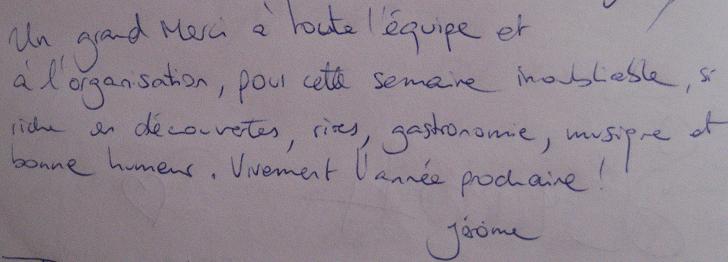 Un grand Merci à toute l'équipe et
à l'organisation, pour cette semaine inoubliable, si
riche en découvertes, rires, gastronomie, musique et
bonne humeur. Vivement l'année prochaine !
Jérôme